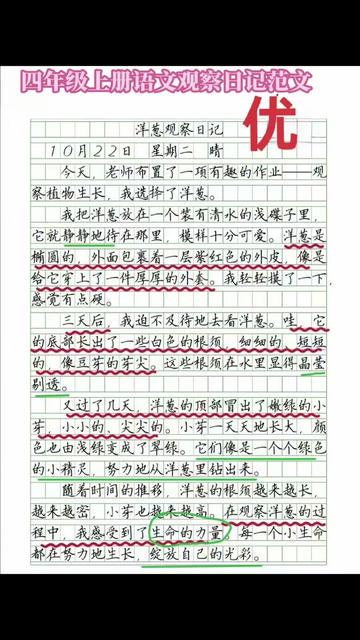 四年级上册语文观察日记范文
优
洋葱观察日记
10月22日 星期二 晴
今天,老师布置了一项有趣的作业——观
察植物生长,我选择了洋葱。
我把洋葱放在一个装有清水的浅碟子里,
它就静静地待在那里,模样十分可爱。洋葱是
椭圆的,外面包裹着一层紫红色的外皮,像是
给它穿上了一件厚厚的外套。我轻轻摸了一下,
感觉有点硬。
三天后,我迫不及待地去看洋葱。哇,它
的底部长出了一些白色的根须,细细的、短短
的,像豆芽的芽尖。这些根须在水里显得晶莹
剔透。
又过了几天,洋葱的顶部冒出了嫩绿的小
芽,小小的,尖尖的。小芽一天天地长大,颜
色也由浅绿变成了翠绿。它们像是一个个绿色
的小精灵,努力地从洋葱里钻出来。
随着时间的推移,洋葱的根须越来越长,
越来越密,小芽也越来越高。在观察洋葱的过
程中,我感受到了生命的力量,每一个小生命
都在努力地生长,绽放自己的光彩。